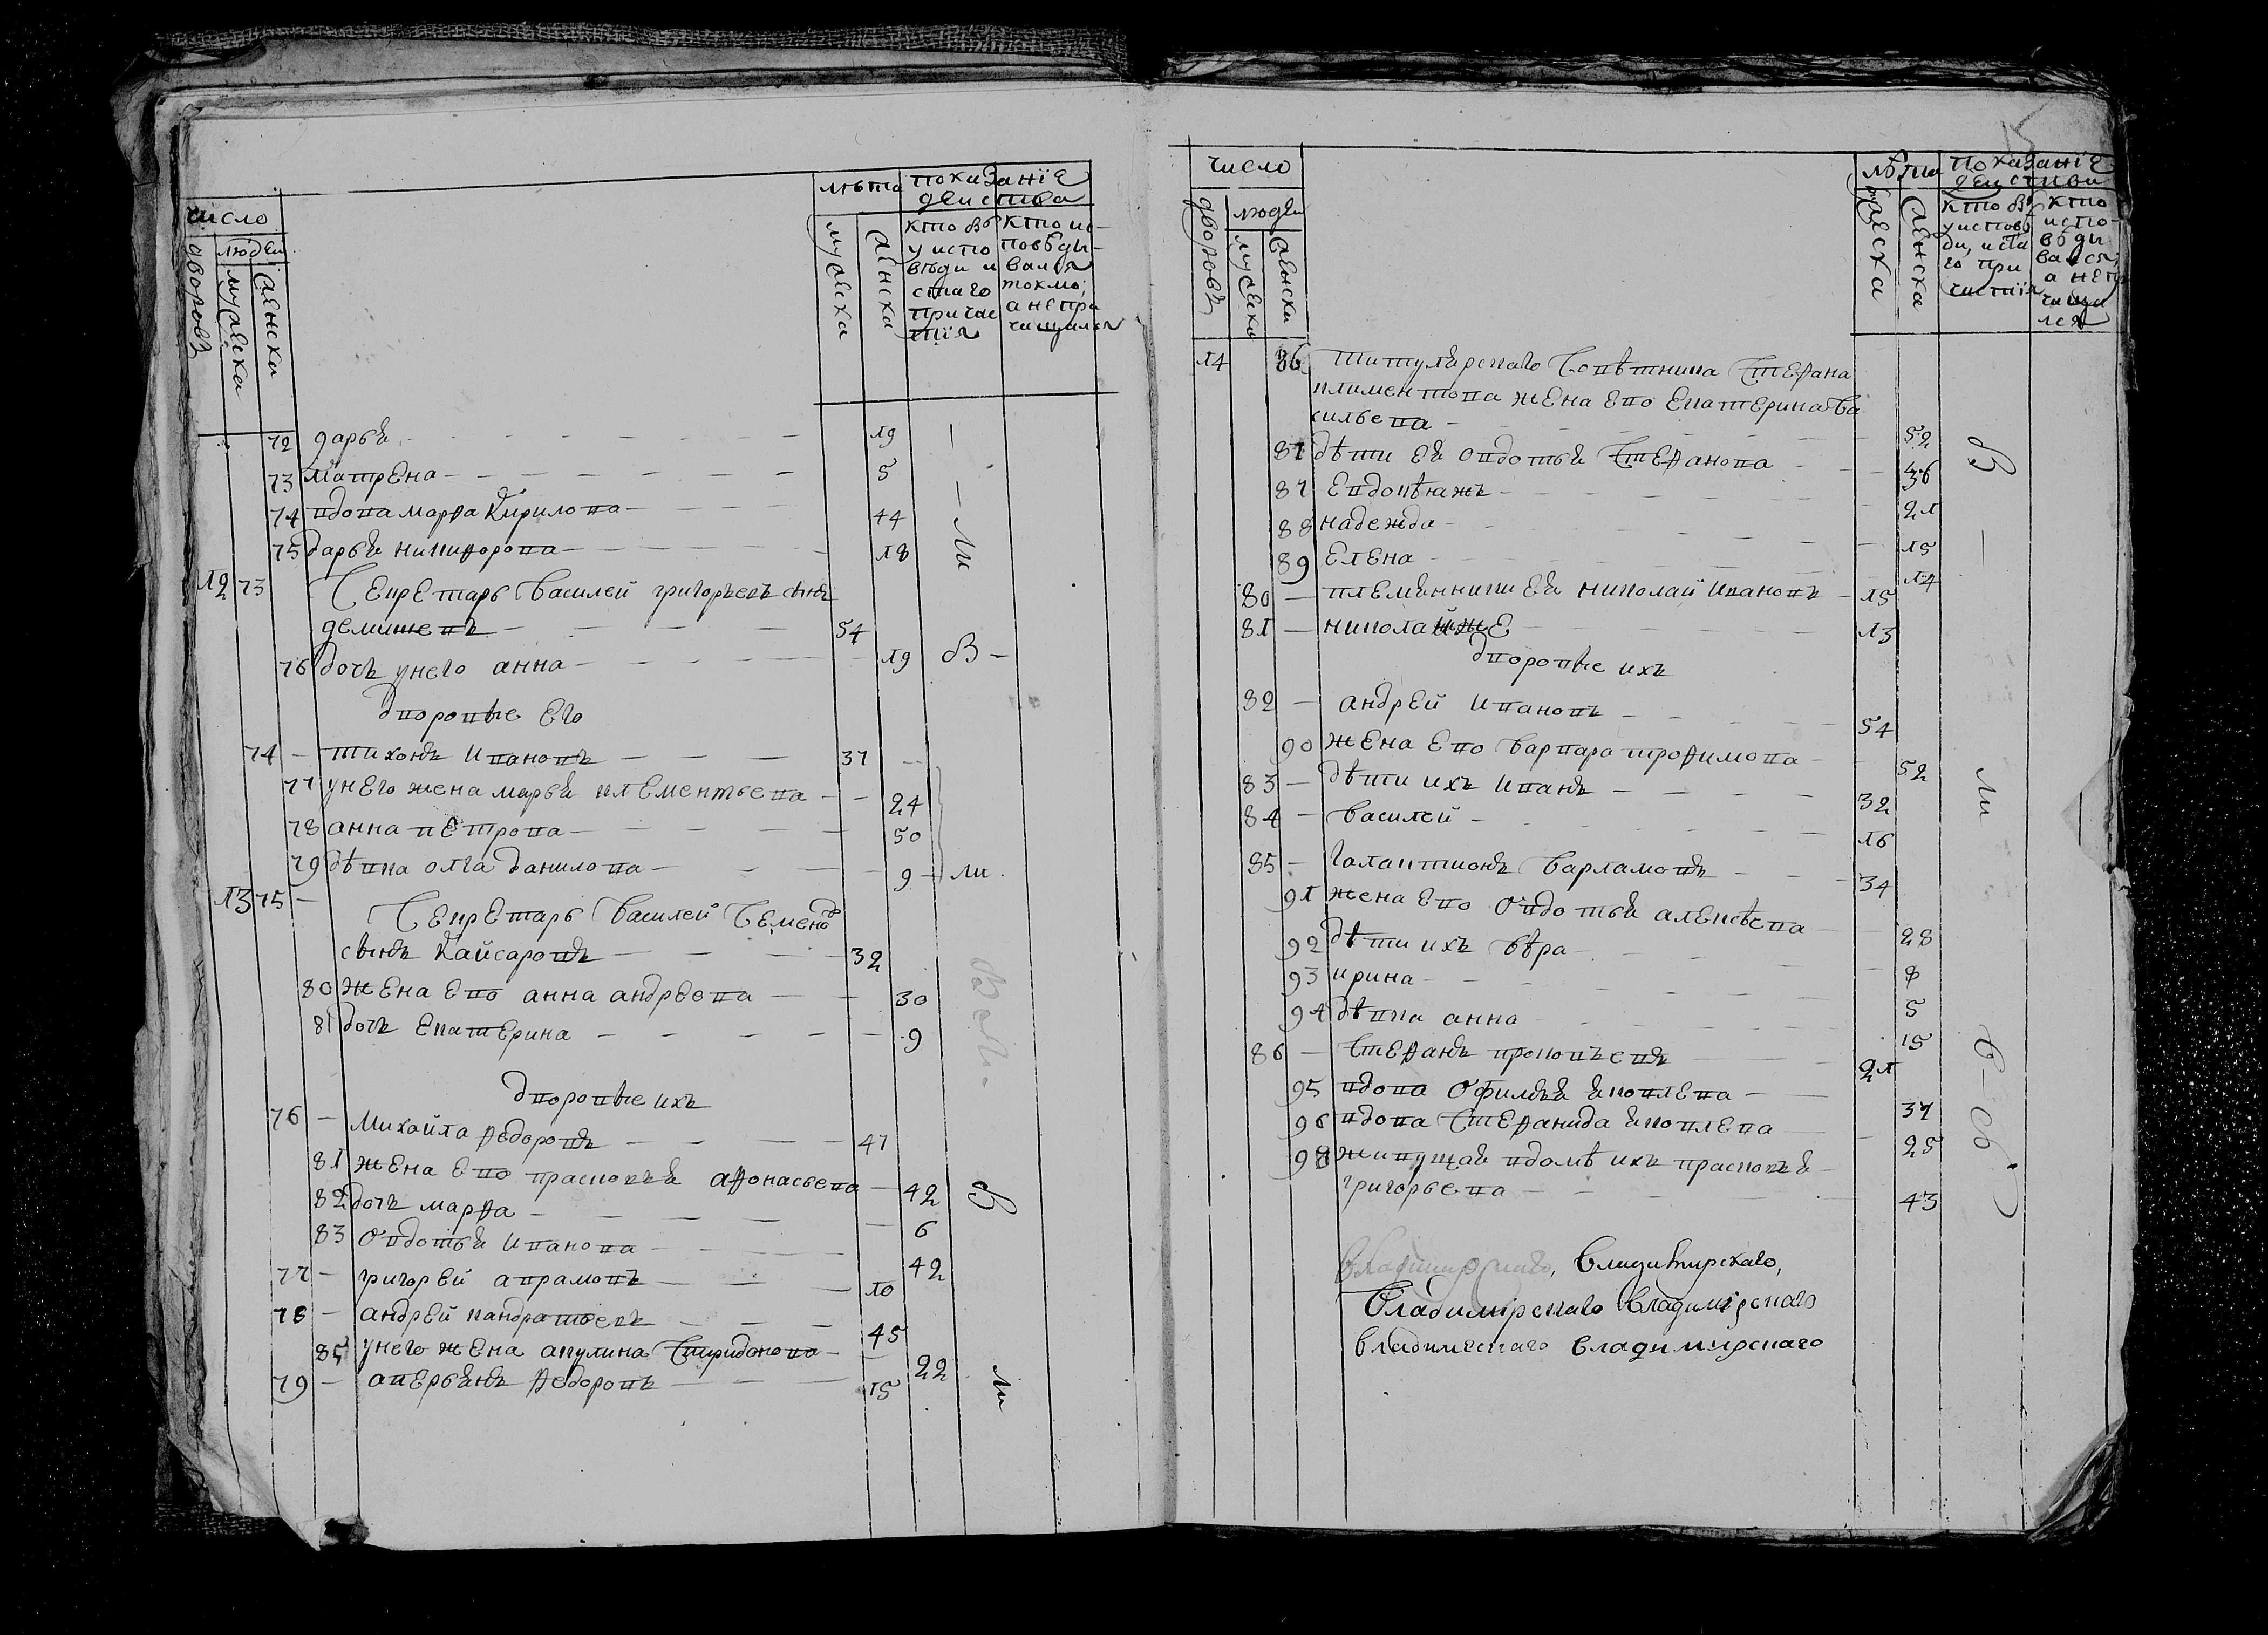 число
людеи
дворовъ
мужеска
женска
лѣта
мужеска
женска
показанïе
действа
кто был
у испо
вѣди и
стаго
причас
тïя
кто ис-
повѣды-
вался
токмо;
а непри
чащался
72 дарья 19
73 матрена 5
74 вдова марѳа Кирилова 44
75 дарья никиѳорова 18
ли
12 73 Секретарь Василей григорьевъ сынъ
демишевъ 54
76 дочь унего анна 19 в
дворовые Его
74 тихонъ Ивановъ 37
77 унего жена марья клементьева 24
78 анна петрова 50
79 дѣвка олга данилова 9 ли
13 75 Секретарь Василей Семеновъ
сынъ Кайсаровъ 32
80 жена ево анна андреева 30
81 дочь Екатерина 9
дворовые ихъ
76 Михайла ѳедоровъ 47
81 жена ево прасковья аѳонасьева 42 в
82 дочь марѳа 6
83 овдотья иванова 42
77 григорей аврамовъ 10
78 андрей кандратьевъ 45
85 унего жена акулина спиридонова 22
79 аверьянъ ѳедоровъ 15 ли
число
дворовъ
людеи
мужеска
женски
лѣта
мужеска
женска
показанïе
действа
кто был
у исповѣ
ди, и ста
го при
частïя
кто
испо-
вѣды
вался,
а непри
чаща
лся
14 86 титулярскаго Совѣтника Стеѳана
климентова жена ево Екатерина Ва
сильева 52
87 дѣти ея овдотья Стеѳанова 36
87 Евдокѣя жъ 21
88 надежда 15
89 Елена 14
80 племянники ея николай Ивановъ 15
81 николай же 13
дворовые ихъ
82 андрей Ивановъ 54
90 жена ево варвара троѳимова 52
83 дѣти ихъ Иванъ 32
84 Василей 16
85 Галактионъ Варламовъ 34
91 жена ево овдотья алексѣева 28
92 дѣти ихъ вѣра 8
93 ирина 5
94 дѣвка анна 15
86 Стеѳанъ прокопьевъ 21
95 вдова Офимья яковлева 37
96 вдова Стеѳанида яковлева 25
98 живущая вдомѣ ихъ прасковья
григорьева 43
в
ли
Владимирскаго,
Владимирскаго Владимирскаго
Владимескаго Владимирскаго